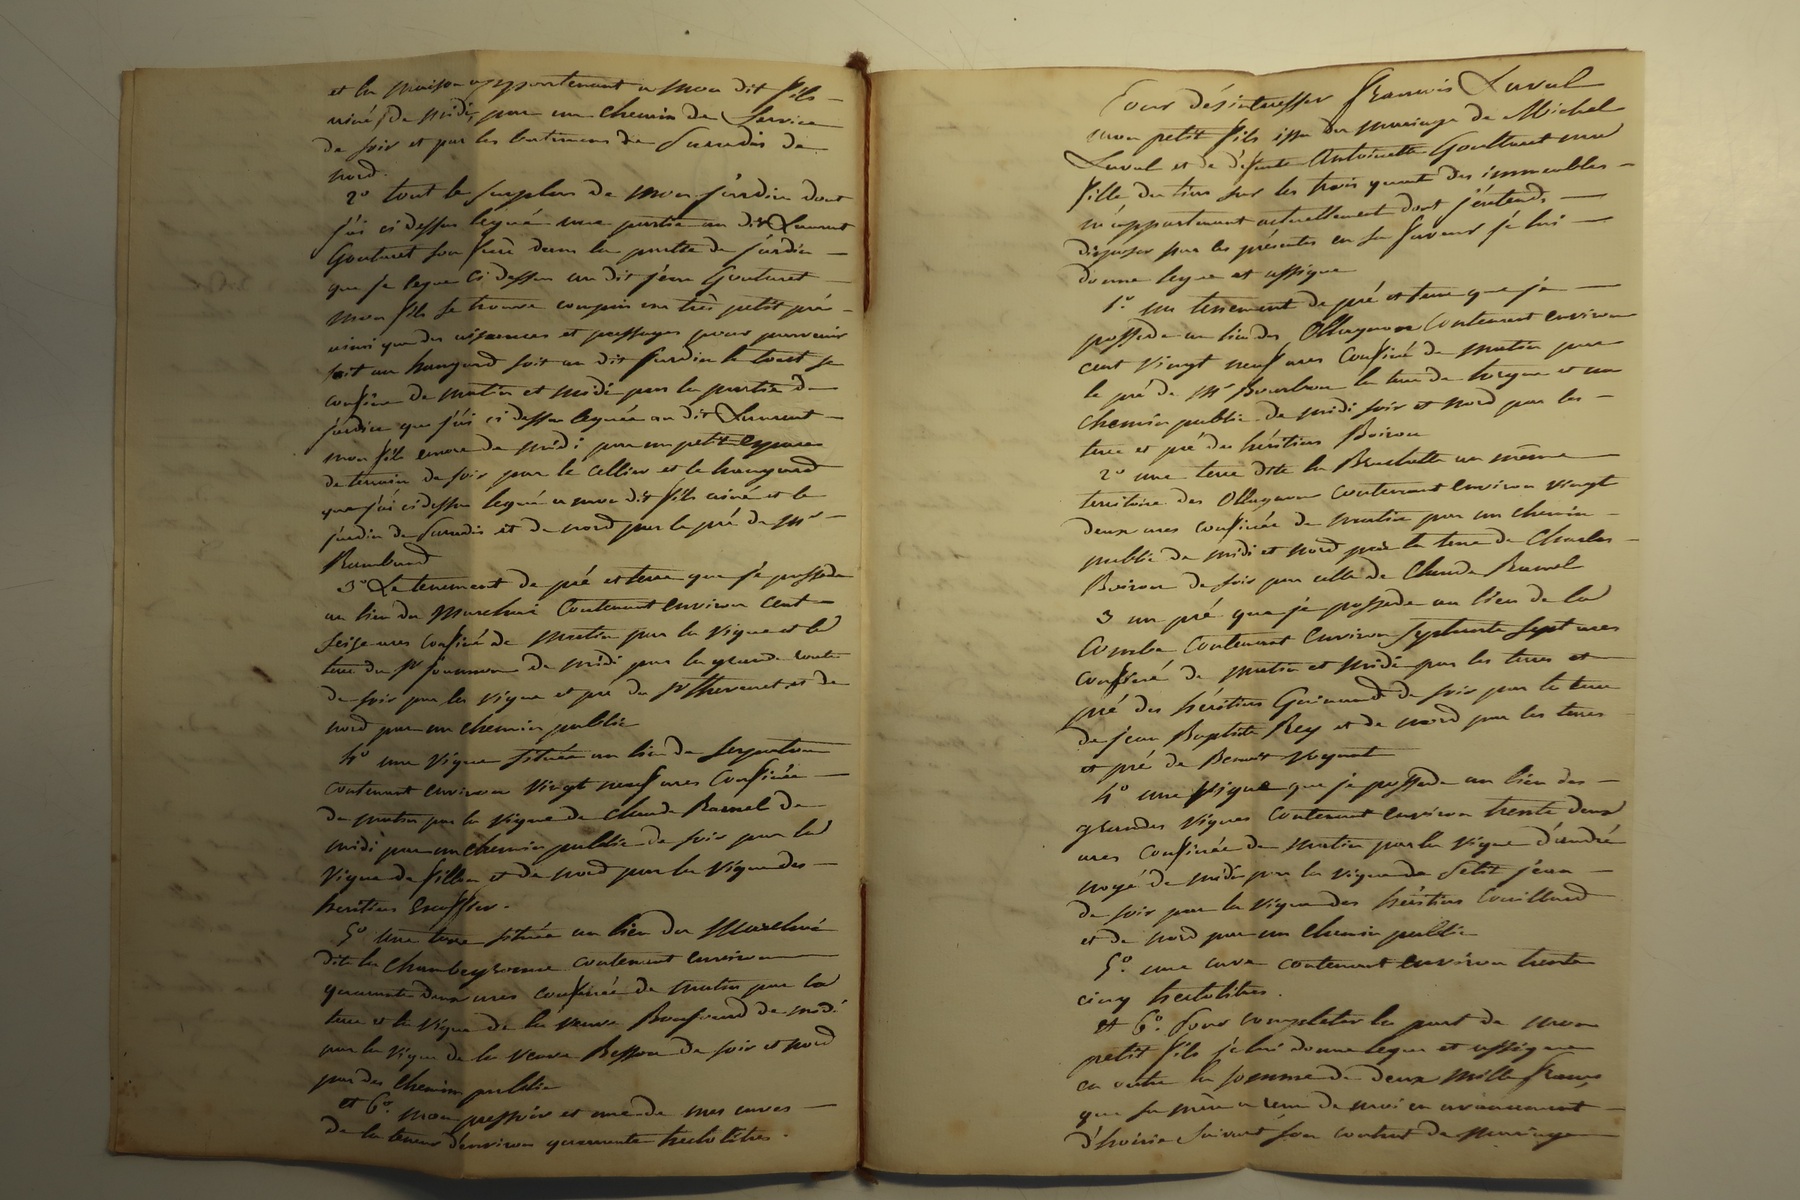 et la maison appartenant a mon dit fils
ainé, de midi, par un chemin de Service
de soir et par les batimens de Surredis de
nord.
2º tout le surplus de mon jardin dont
j'ai ci dessus legué une partie au dit Laurent
Gouturet son frere dans la partie de jardin
que je legue ci dessus au dit jean Gouturet
mon fils se trouve compris un très petit pré
ainsi que des aisances et passages pour parvenir
soit au hangard soit au dit jardin le tout se
confine de matin et midi par la partie de
jardin que j'ai ci dessus leguée au dit Laurent
mon fils encore de midi par un petit espace
de terrain de soir par le cellier et le hangard
que j'ai ci dessus legué a mon dit fils ainé et le
jardin de Surredis et de nord par le pré de Mr
Rambaud
3º Le tenement de pré et terre que je possede
au lieu du Marchué Contenant environ cent
seize ares confiné de matin par la vigne et la
terre du Sr de midi par la grande route
de soir par la vigne et pré du Sr Thevenet et de
nord par un chemin public
4º une vigne située au lieu de
contenant environ vingt neuf ares Confinée
de matin par la vigne de Claude Ramel de
midi par un chemin public de soir par la
vigne de Fillon et de nord par la vigne des
heritiers
5º une terre située au lieu du Marchué
dite la contenant environ
quarante deux ares confinée de matin par la
terre et la vigne de la veuve de midi
par la vigne de la veuve Besson de soir et nord
par des chemin public
et 6º. mon pressoir et une de mes cuves
de la teneur d'environ quarante hectolitres.
Pour désinteresser François Laval
mon petit fils issu du mariage de Michel
Laval et de défunte Antoinette Gouturet ma
fille, du tiers sur les trois quarts des immeubles
m'appartenant actuellement dont j'entends
disposer par les présentes en sa faveur je lui
donne legue et assigne
1º. un tenement de pré et terre que je
possede au lieu des Ollagnons Contenant environ
cent vingt neuf ares Confiné de matin par
le pré de Mr Bourbon la terre de et un
chemin public de midi soir et nord par les
terre et pré des héritiers Boiron
2º une terre dite la Brachette au même
territoire des Ollagnons Contenant environ vingt
deux ares confinée de matin par un chemin
public de midi et nord par la terre de Charles
Boiron de soir par celle de Claude Ramel
3 un pré que je possede au lieu de la
Combe Contenant environ septante sept ares
confiné de matin et midi par les terres et
pré des héritiers Guinand de soir par la terre
de jean Baptiste Rey et de nord par les terres
et pré de Benoit
4º une vigne que je possede au lieu des
grandes vignes Contenant environ trente deux
ares Confinée de matin par la vigne d'andré
noyé de midi par la vigne de Petit jean
de soir par la vigne des héritiers Couillard
et de nord par un chemin public
5º. une cuve contenant environ trente
cinq hectolitres.
et 6º. Pour completer la part de mon
petit fils je lui donne legue et assigne
en outre la somme de deux mille francs
que sa mère a reçu de moi en avancement
d'hoirie suivant son contrat de mariage